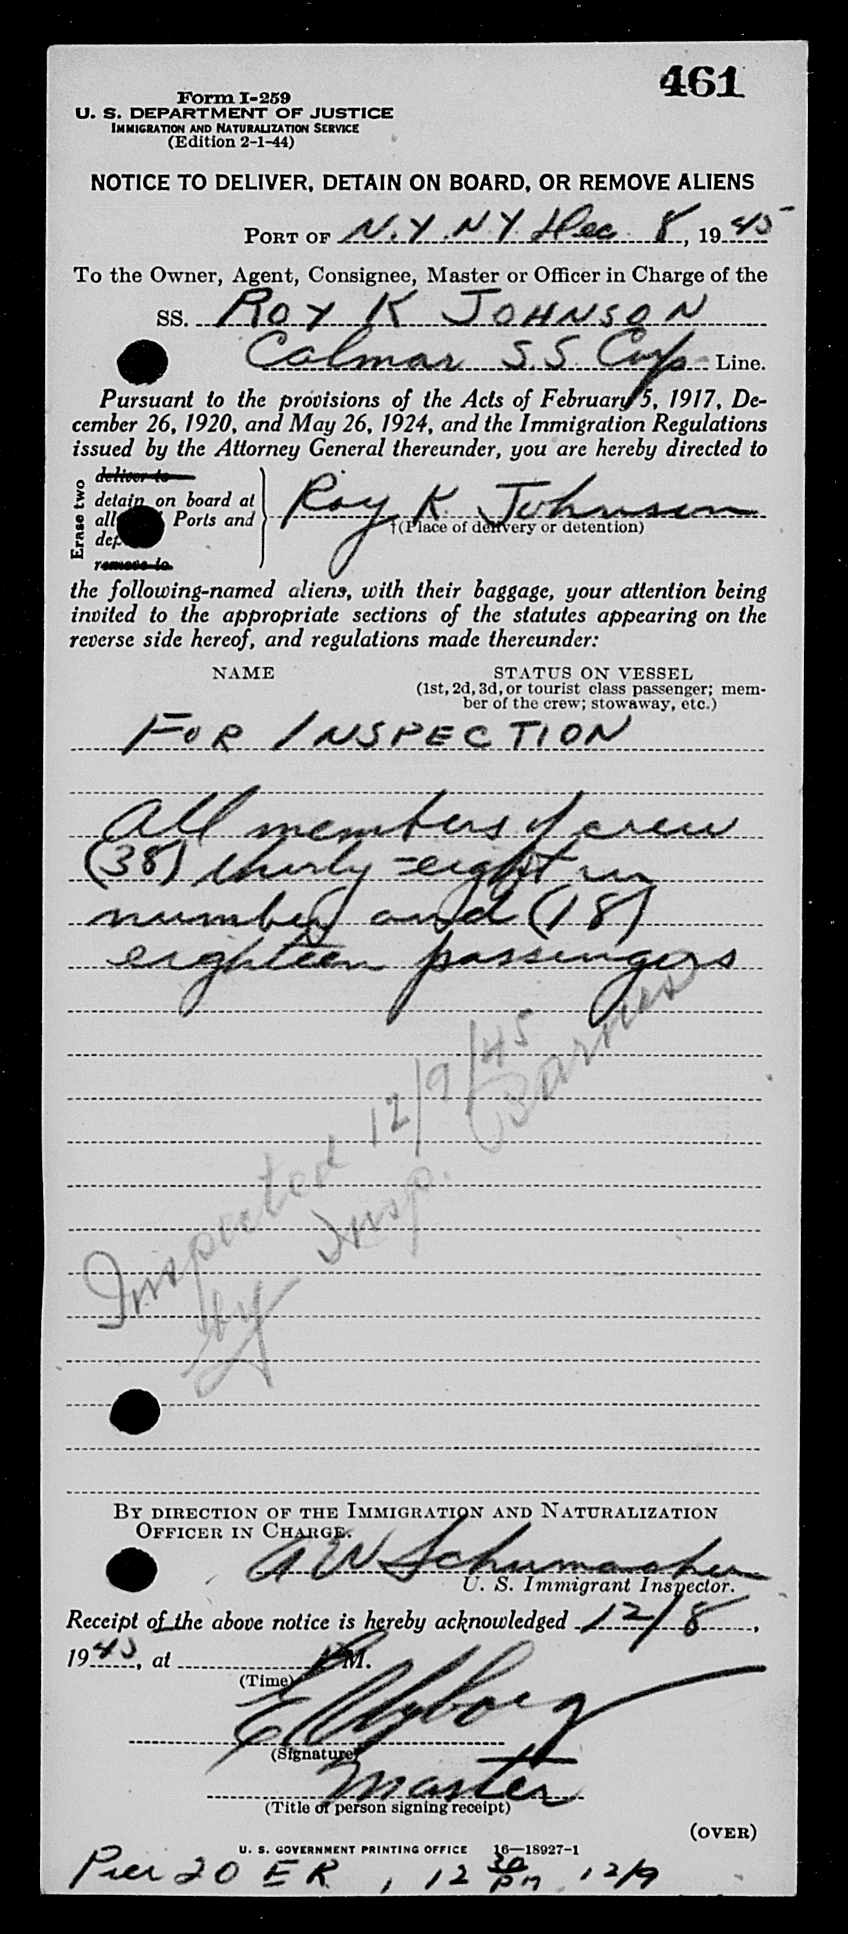 461
Form I-259
U. S. DEPARTMENT OF JUSTICE
IMMIGRATION AND NATURALIZATION SERVICE
(Edition 2-1-44)
NOTICE TO DELIVER, DETAIN ON BOARD, OR REMOVE ALIENS
PORT OF N.Y. N Y. Dec 8, 1945
To the Owner, Agent, Consignee, Master or Officer in Charge of the
SS. ROY K JOHNSON
Calmar S.S. Corp Line.
Pursuant to the provisions of the Acts of February 5, 1917, De-
cember 26, 1920, and May 26, 1924, and the Immigration Regulations
issued by the Attorney General thereunder, you are hereby directed to
Erase two
deliver to
detain on board at
all Ports and
remove to
Roy K Johnson
†(Place of delivery or detention)
the following-named aliens, with their baggage, your attention being
invited to the appropriate sections of the statutes appearing on the
reverse side hereof, and regulations made thereunder:
NAME STATUS ON VESSEL
(1st, 2d, 3d, or tourist class passenger; mem-
ber of the crew; stowaway, etc.)
FOR INSPECTION
All members of crew
(38) thirty-eight in
number and (18)
eighteen passengers
Inspected 12/9/45
by Insp. Barnes
BY DIRECTION OF THE IMMIGRATION AND NATURALIZATION
OFFICER IN CHARGE.
A W Schumacher
U. S. Immigrant Inspector.
Receipt of the above notice is hereby acknowledged 12/8,
1945, at P M.
(Time)
(Signature)
Master
(Title of person signing receipt)
(OVER)
U. S. GOVERNMENT PRINTING OFFICE 16—18927-1
Pier 20 ER, 12 30 PM 12/9